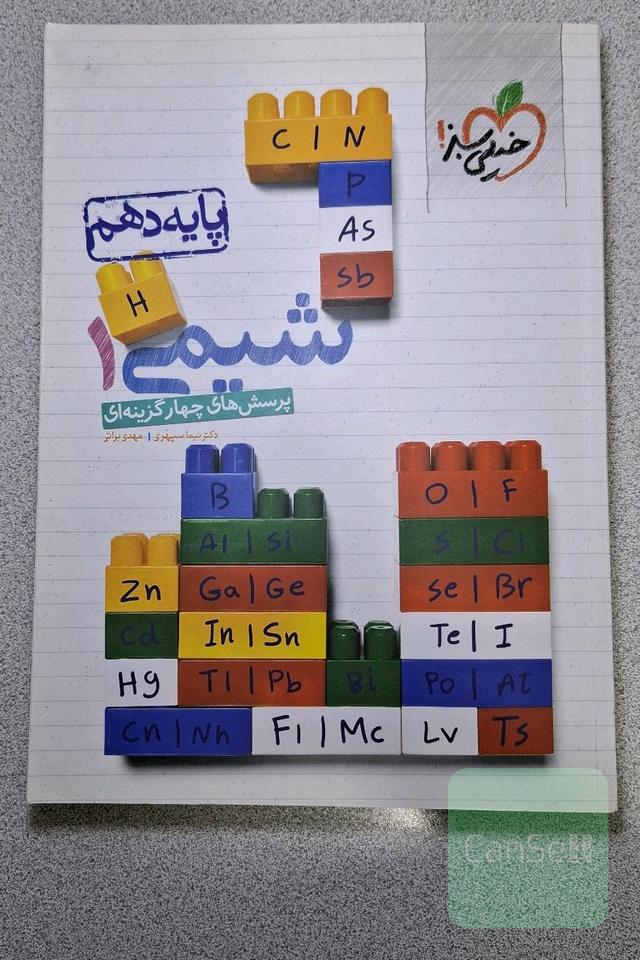 خیلی سبز!
C | N
P
As
Sb
پایه دهم
H
شیمی ۱
پرسش‌های چهارگزینه‌ای
دکتر نیما سپهری | مهدی براتی
B
O | F
Al | Si
S | Cl
Zn
Ga | Ge
Se | Br
Cd
In | Sn
Te | I
Hg
Tl | Pb
Bi
Po | At
Cn | Nh
Fl | Mc
Lv
Ts
CanSell